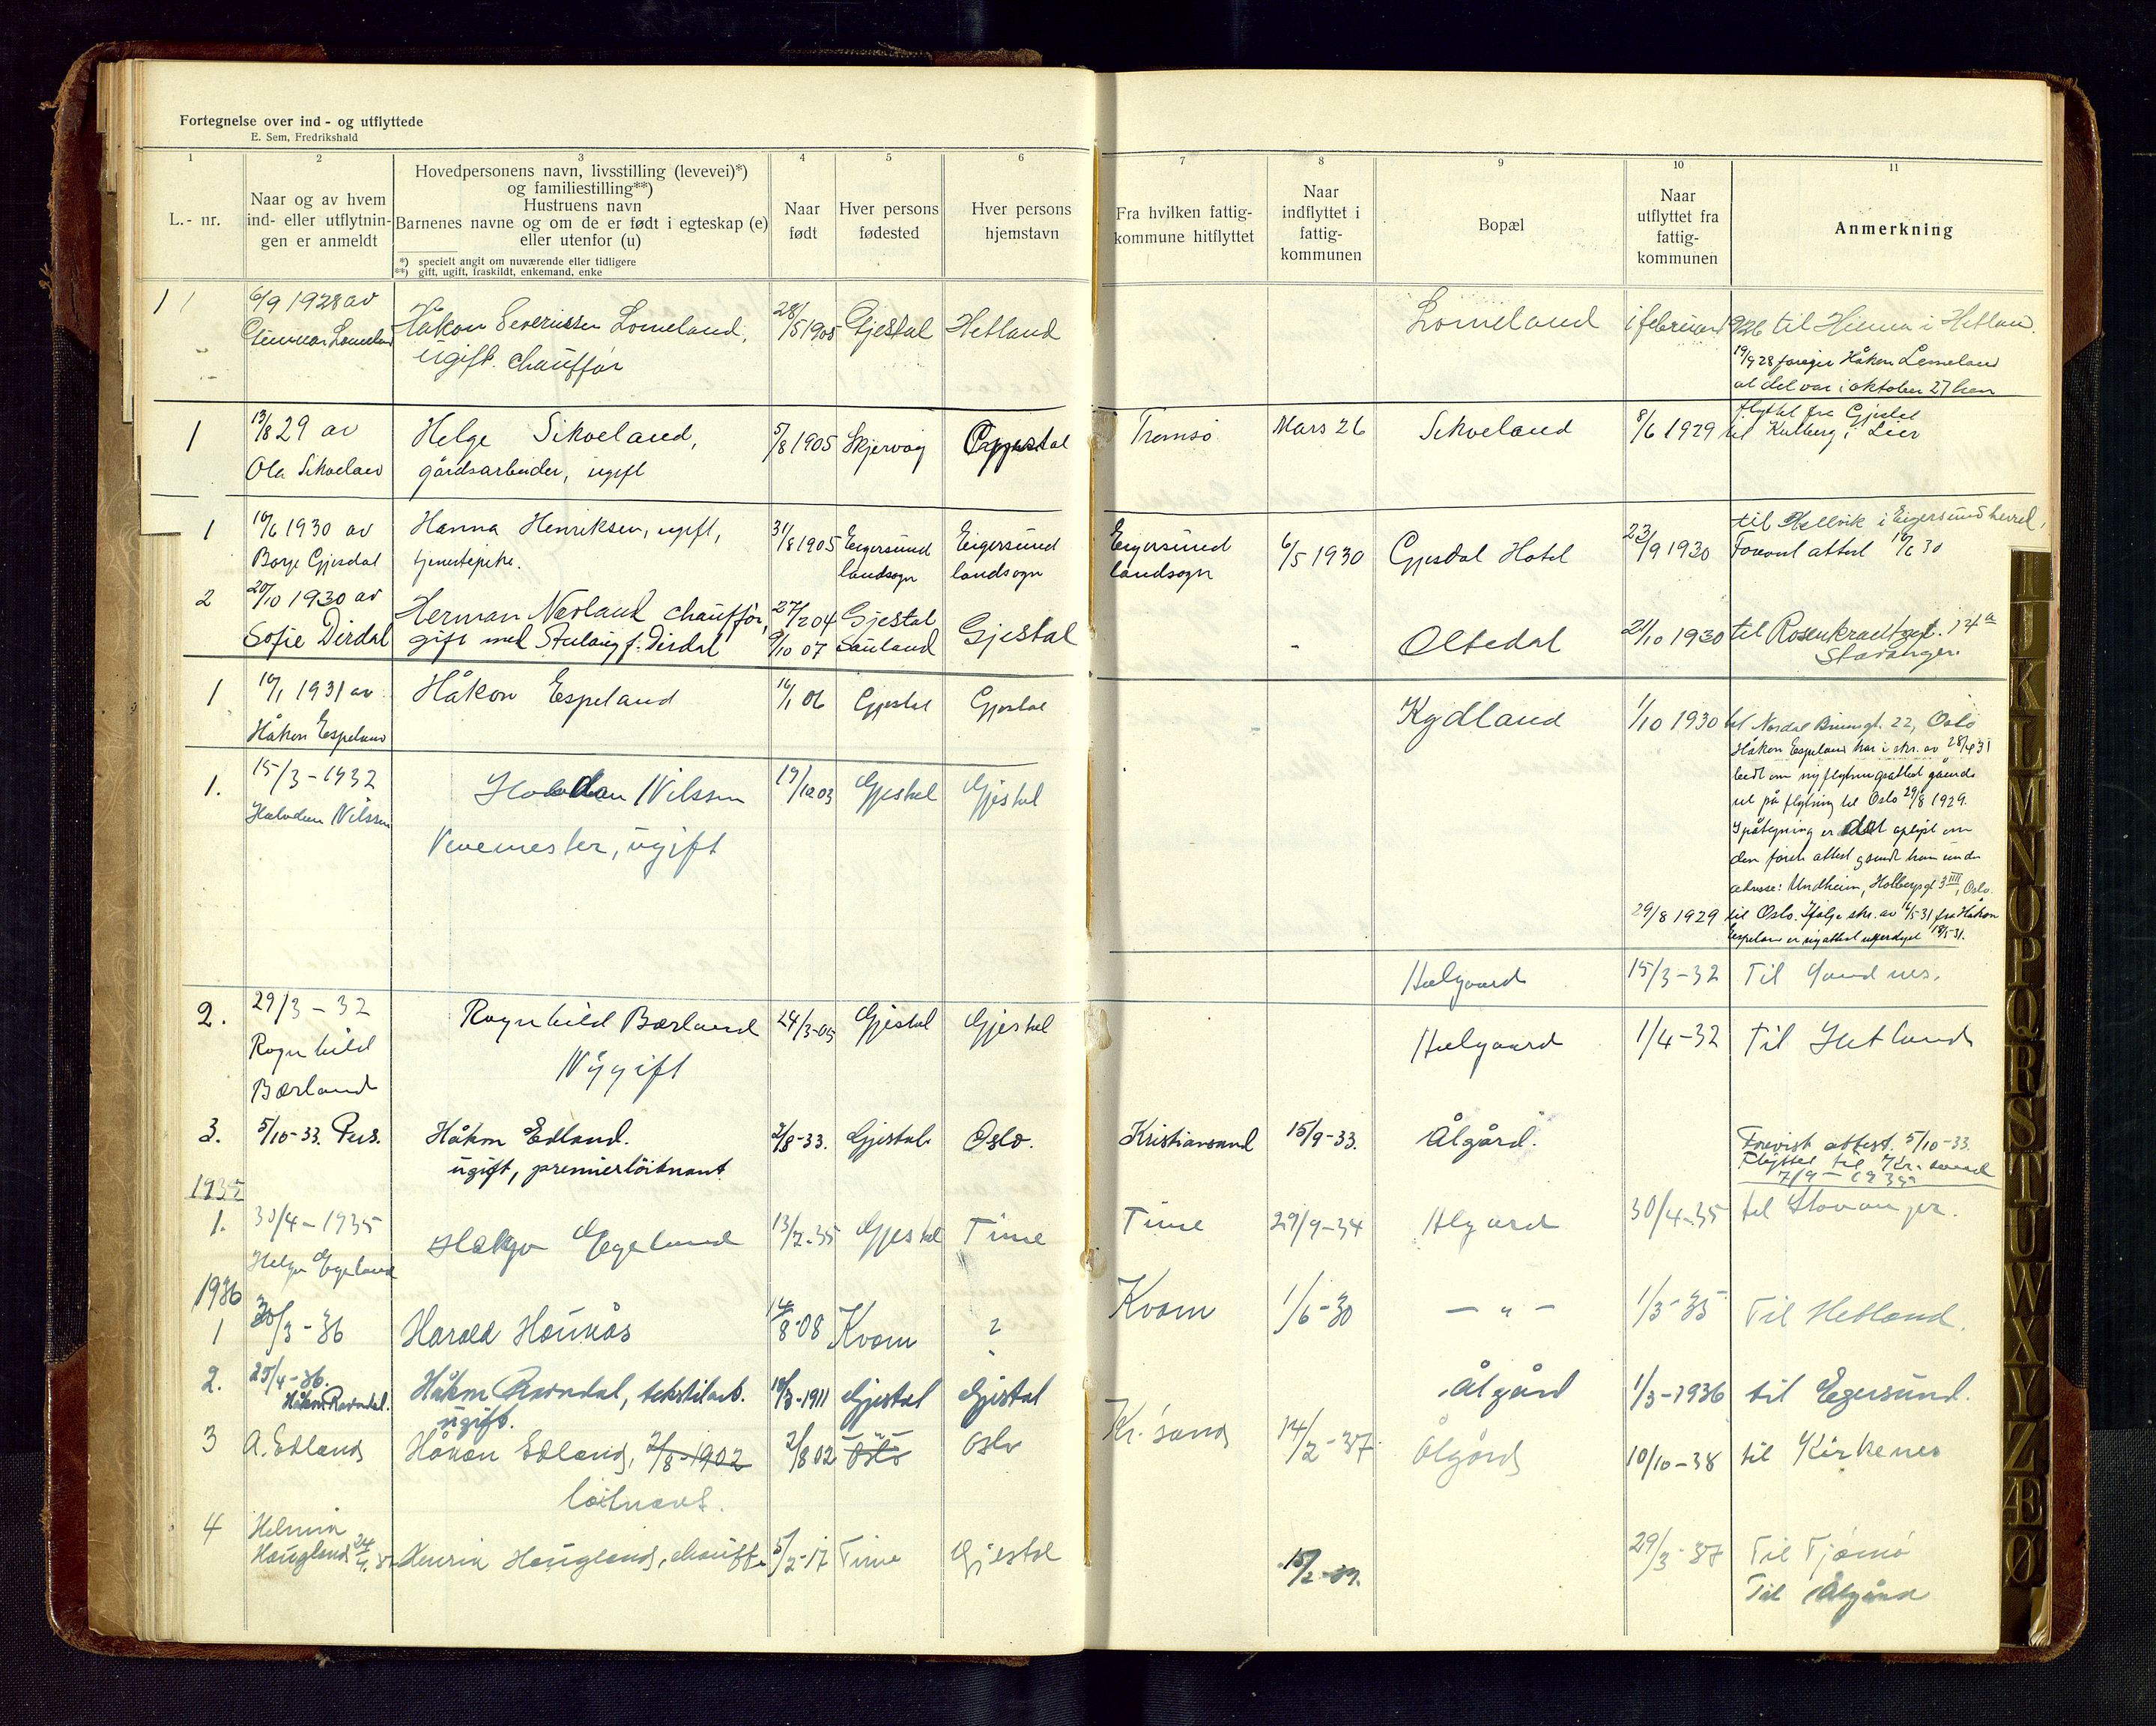 Fortegnelse over ind - og utflyttede
E. Sem, Fredrikshald
1 2 3 4 5 6 7 8 9 10 11
L.- nr.
Naar og av hvem
ind- eller utflytnin-
gen er anmeldt
Hovedpersonens navn, livsstilling (levevei)*)
og familiestilling**)
Hustruens navn
Barnenes navne og om de er født i egteskap (e)
eller utenfor (u)
*) specielt angit om nuværende eller tidligere
**) gift, ugift, fraskildt, enkemand, enke
Naar
født
Hver persons
fødested
Hver persons
hjemstavn
Fra hvilken fattig-
kommune hitflyttet
Naar
indflyttet i
fattig-
kommunen
Bopæl
Naar
utflyttet fra
fattig-
kommunen
Anmerkning
1 6/9 1928 av Håkon Severinsen Lomeland, 28/5 1905 Gjestal Hetland Lomeland i februar 1926 til Hinna i Hetlan.
Gunnar Lomeland ugift. chauffør
19/9 28 foregir Håkon Lomeland
at det var i oktober 27 han
flyttet fra Gjestal
1 13/8 29 av Helge Sikveland, 5/8 1905 Skjervøy Gjestal Tromsö Mars 26 Sikveland 8/6 1929 til Kulberg i Lier
Ola Sikveland gårdsarbeider, ugift
til Hellvik i Eigersund herred,
1 10/6 1930 av Hanna Henriksen, ugift, 31/8 1905 Eigersund Eigersund Eigersund 6/5 1930 Gjesdal Hotel 23/9 1930 Forevist attest 10/6 30
Borge Gjesdal tjenestepike. landsogn landsogn landsogn
2 20/10 1930 av Herman Nevland chauffør, 27/2 04 Gjestal Gjestal Oltedal 21/10 1930 til Rosenkrantzgt. 14a
Sofie Dirdal gift med f: Dirdal 9/10 07 Stavanger.
1 10/1 1931 av Håkon Espeland 16/1 06 Gjestal Gjestal Kydland 1/10 1930 til Nordal Brunsgt. 22, Oslo
Håkon Espeland
Håkon Espeland har i skr. av 28/4 31
bedt om ny flytningsattest gående
ut på flytning til Oslo 29/8 1929.
I påtegning er det oplyst om
den forrige attest sendt ham under
adresse: Undheim, Holbergsgt 3 IIII, Oslo.
29/8 1929 til Oslo. Ifølge skr. av 16/5 31 fra Håkon
Espeland er ny attest utferdiget 18/5 31.
1. 15/3 - 1932 Halvdan Nilssen 19/12 03 Gjestal Gjestal
Halvdan Nilssen
Vevemester, ugift
Aalgaard 15/3-32 Til Sandnes.
2. 29/3 - 32 Ragnhild Bærland 24/3-05 Gjestal Gjestal Aalgaard 1/4-32 Til Hetland
Ragnhild Nygift
Bærland
3. 5/10-33. Pers. Håkon Edland. 2/8-33. Gjestal Oslo. Kristiansand 15/9-33. Ålgård. Forevist attest. 5/10-33.
ugift, premierlöitnant Flyttet til Kr. sand
7/9 - 1935
1935
1. 30/4 - 1935 Helga Egeland 13/2-35 Gjestal Time Time 29/9-34 Algard 30/4-35 til Stavanger.
Helga Egeland
1936
1 30/3 - 36 Harald Haunås 14/8-08 Kvam ? Kvam 1/6-30 - " - 1/3-35 Til Hetland.
2. 25/4-36. Håkon Ravndal, tekstilarb. 10/3-1911 Gjestal Gjestal Ålgård 1/3-1936 til Egersund.
Håkon Ravndal. ugift.
3 A. Edland Håkon Edland, 2/8-1902 2/8 02 Oslo Oslo Kr. sand 14/2-37 Ålgård 10/10-38 til Kirkenes
löitnant.
4 Haugland, chauffør 5/2-17 Time Gjestal 29/3-37 Til Tjømø
Haugland 15/2 Til Ålgård
I
J
K
L
M
N
O
P
Q
R
S
T
U
W
X
Y
Z
Æ
Ø